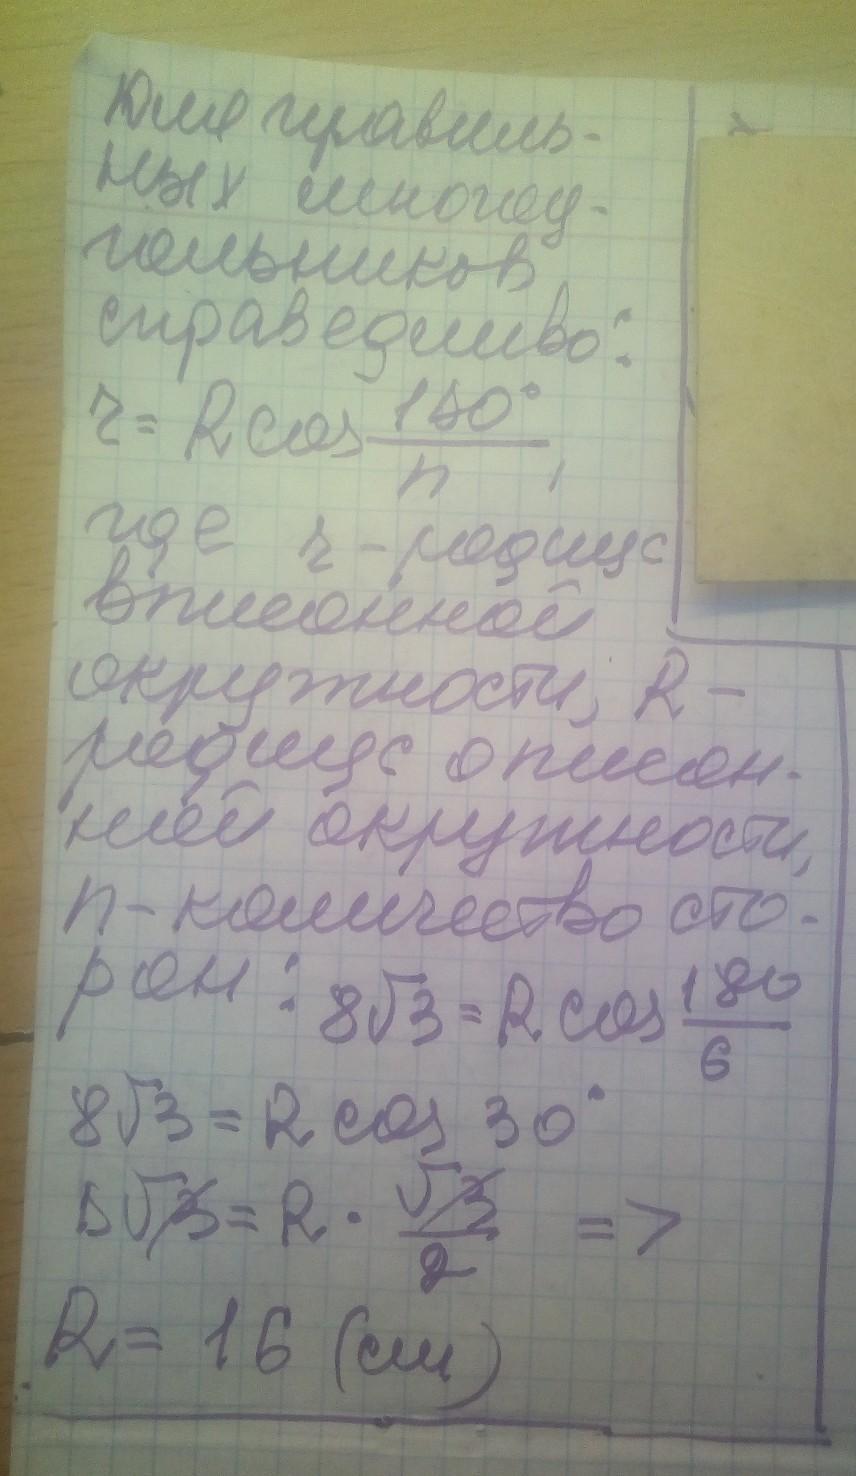 Для правиль-
ных многоу-
гольников
справедливо:
r = R cos 180°/n,
где r - радиус
вписанной
окружности, R -
радиус описан-
ной окружности,
n - количество сто-
рон: 8√3 = R cos 180/6
8√3 = R cos 30°
8√3 = R · √3/2 =>
R = 16 (см)